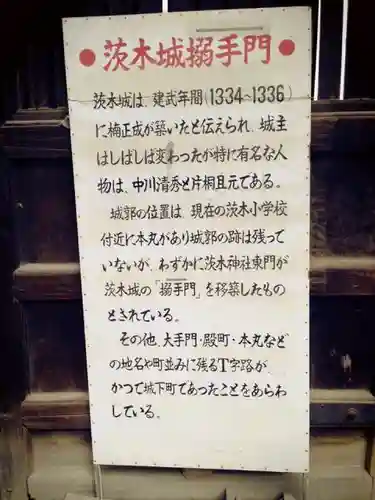 ●茨木城搦手門●
茨木城は、建武年間(1334~1336)
に楠正成が築いたと伝えられ、城主
はしばしば変わったが特に有名な人
物は、中川清秀と片桐且元である。
城郭の位置は、現在の茨木小学校
付近に本丸があり城郭の跡は残って
いないが、わずかに茨木神社東門が
茨木城の「搦手門」を移築したもの
とされている。
その他、大手門・殿町・本丸などど
の地名や町並みに残るT字路が、
かつて城下町であったことをあらわ
している。